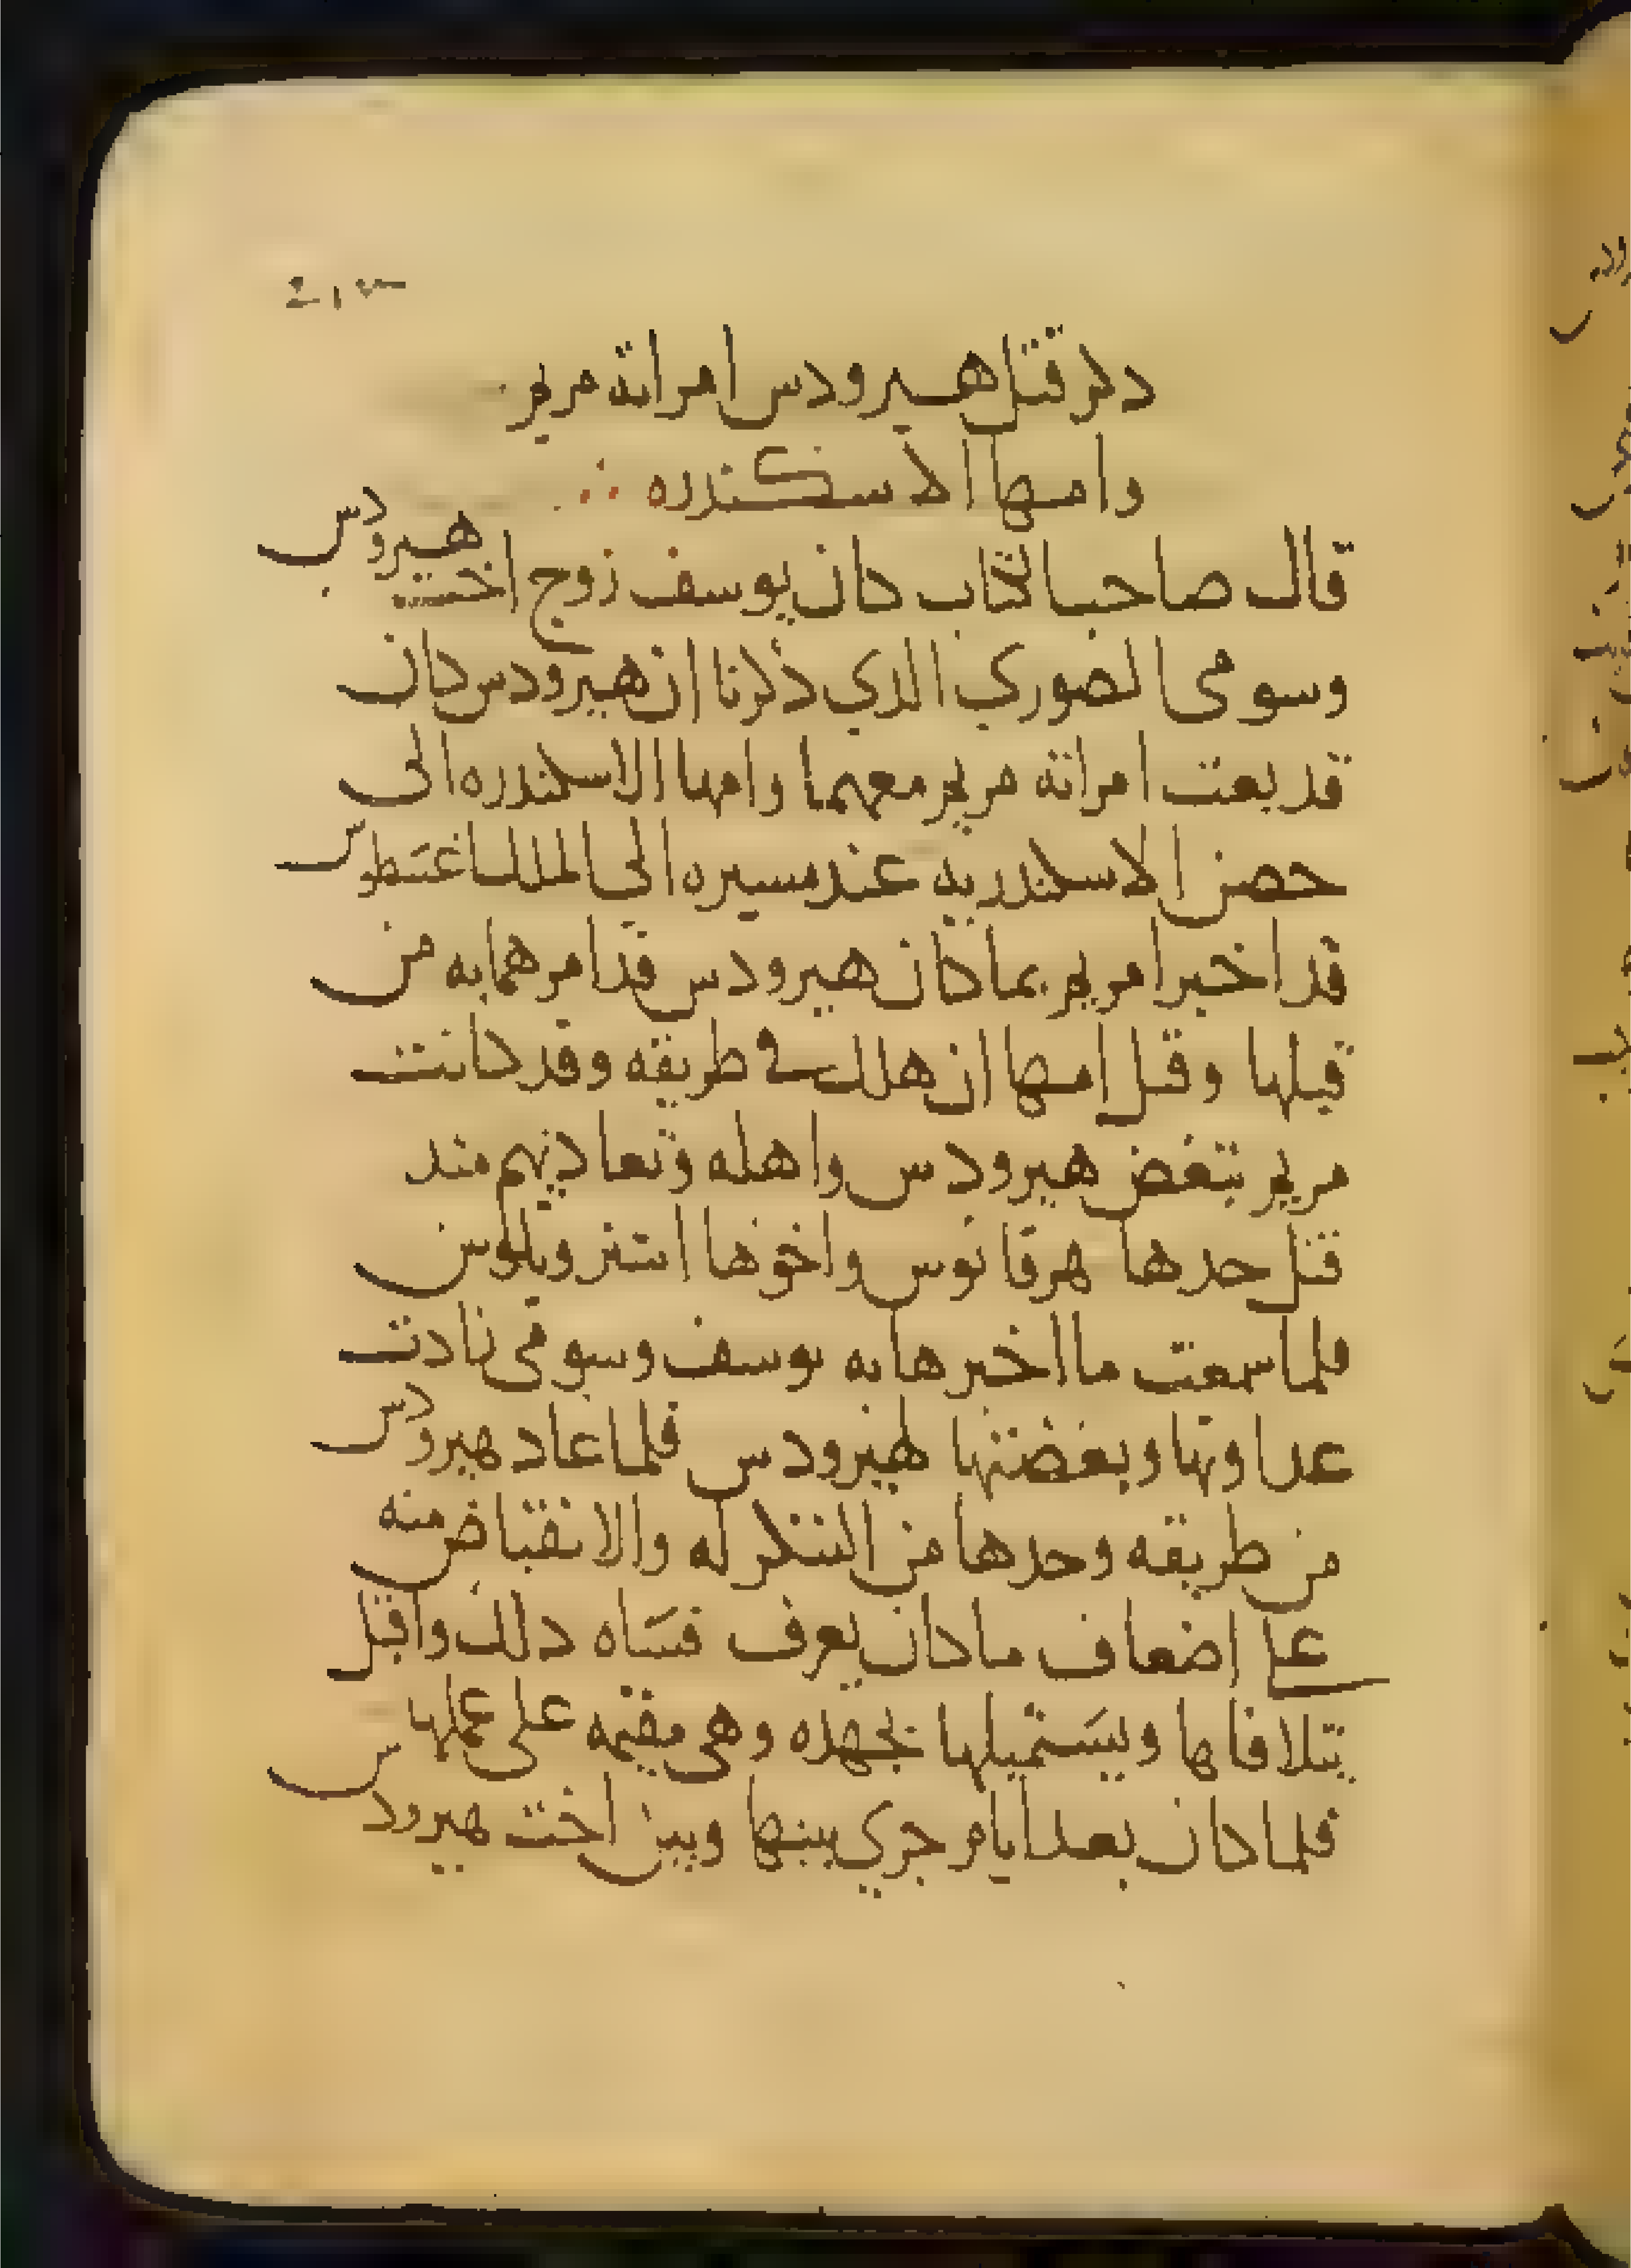 ذكر قتل هيرودس امراته مريم
وامها الاسكندره
قال صاحب الكتاب كان يوسف زوج اخت هيرودس
وسومى الصوري الذي ذكرنا ان هيرودس كان
قد بعت امراته مريم معهما وامها الاسكندره الى
حصن الاسكندريه عند مسيره الي الملك اغسطوس
قد اخبرا مريم بما كان هيرودس قد امرهما به من
قتلها وقتل امها ان هلك في طريقه وقد كانت
مريم تبغض هيرودس واهله وتعاديهم منذ
قتل جدها هرقانوس واخوها
فلما سمعت ما اخبرها به يوسف وسومى زادت
عداوتها وبغضتها لهيرودس فلما عاد هيرودس
من طريقه وجدها من التنكر له والانقباض منه
على اضعاف ما كان يعرف فساه ذلك واقبل
يتلافاها ويستميلها بجهده وهي مقيمه على عملها
فلما كان بعد ايام جري بينها وبين اخت هيرودس